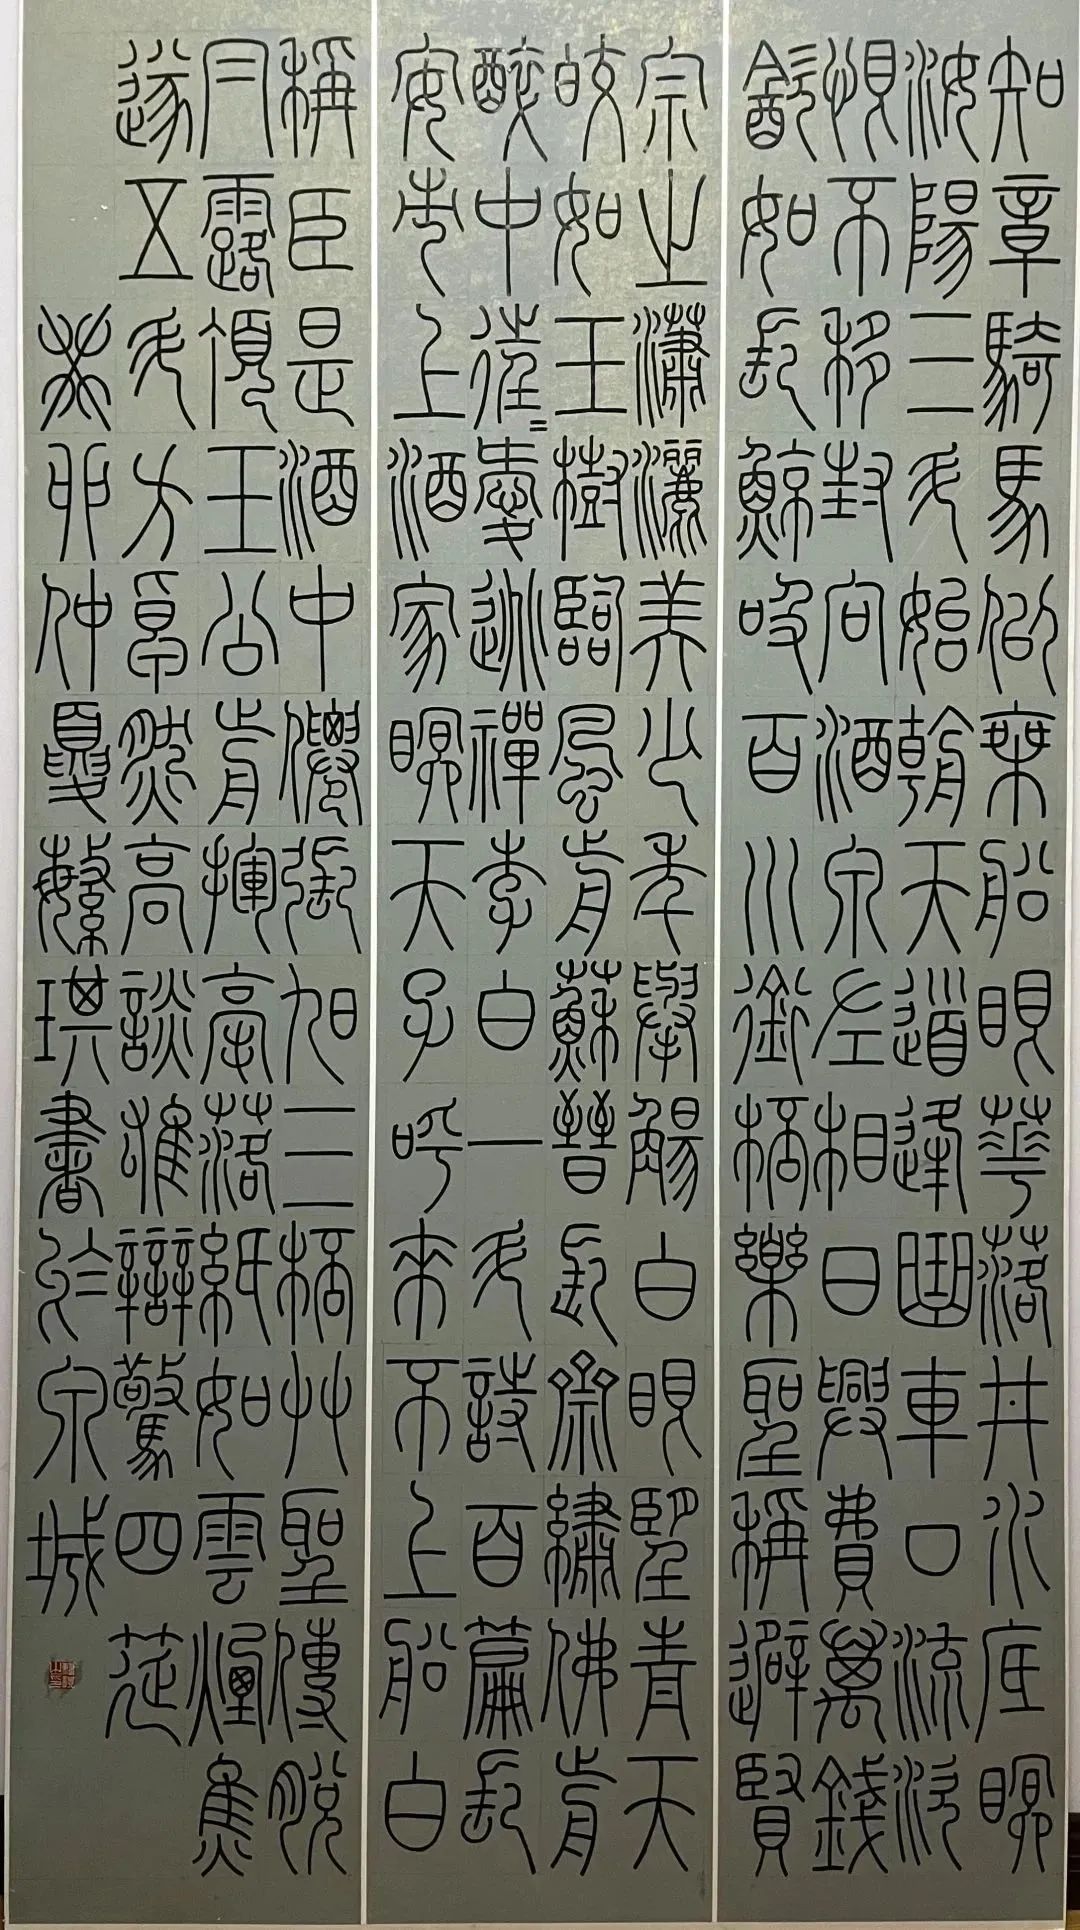 知章騎馬似乘船眼華落井水底眠
汝陽三斗始朝天道逢麴車口流涎
恨不移封向酒泉左相日興費萬錢
飲如長鯨吸百川銜桮樂聖稱避賢
宗之瀟灑美少年舉觴白眼望青天
皎如玉樹臨風前蘇晉長齋繡佛前
醉中往=愛逃禪李白一斗詩百篇長
安市上酒家眠天子呼來不上船自
稱臣是酒中僊張旭三桮艸聖傳脫
冃露頂王公前揮毫落紙如雲煙焦
遂五斗方卓然高談雄辯驚四筵
癸卯仲夏繁琪書於泉城